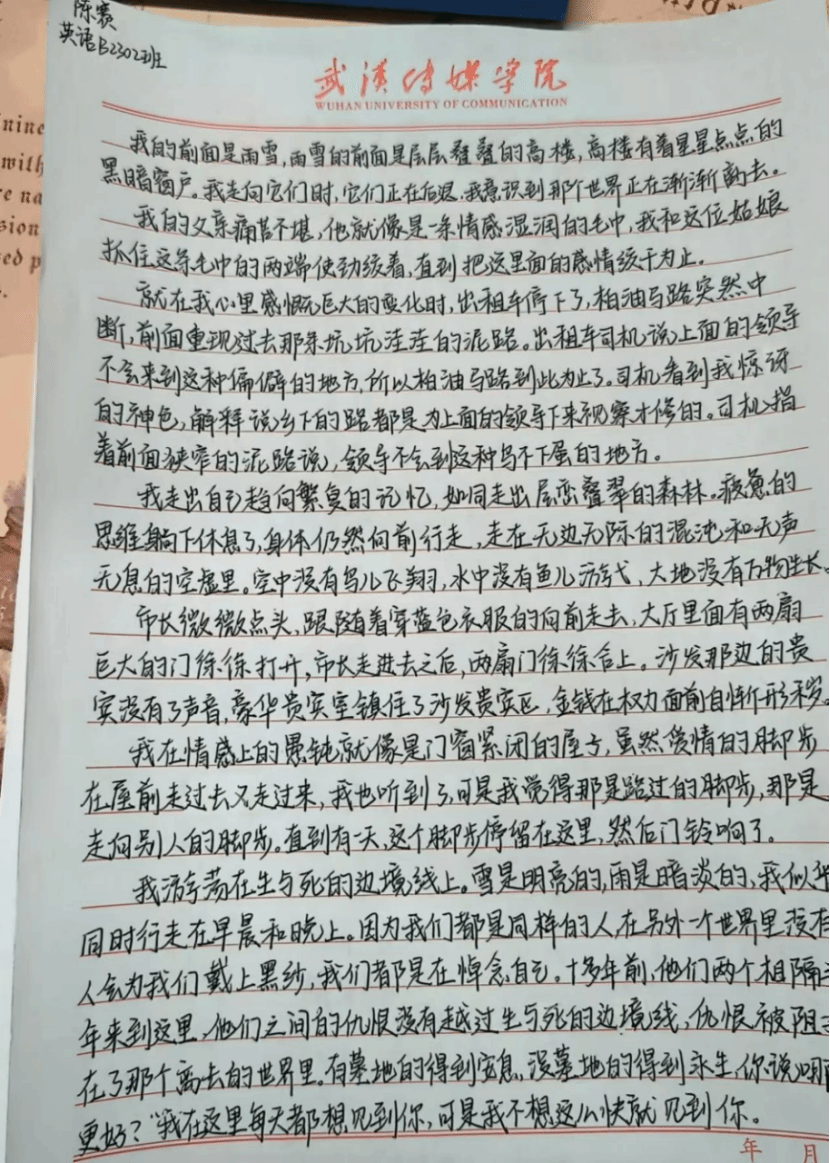 陈赛
英语B2302班
武汉传媒学院
WUHAN UNIVERSITY OF COMMUNICATION
我的前面是雨雪,雨雪的前面是层层叠叠的高楼,高楼有着星星点点的
黑暗窗户。我走向它们时,它们正在后退,我意识到那个世界正在渐渐离去。
我的父亲痛苦不堪,他就像是一条情感湿润的毛巾,我和这位姑娘
抓住这条毛巾的两端使劲绞着,直到把这里面的感情绞干为止。
就在我心里感慨巨大的变化时,出租车停下了,柏油马路突然中
断,前面重现过去那条坑坑洼洼的泥路。出租车司机说上面的领导
不会来到这种偏僻的地方,所以柏油马路到此为止了。司机看到我惊讶
的神色,解释说乡下的路都是为上面的领导下来视察才修的。司机指
着前面狭窄的泥路说,领导不会到这种鸟不下蛋的地方。
我走出自己趋向繁复的记忆,如同走出层峦叠翠的森林。疲惫的
思维躺下休息了,身体仍然向前行走,走在无边无际的混沌和无声
无息的空虚里。空中没有鸟儿飞翔,水中没有鱼儿游弋,大地没有万物生长。
市长微微点头,跟随着穿蓝色衣服的向前走去,大厅里面有两扇
巨大的门徐徐打开,市长走进去之后,两扇门徐徐合上。沙发那边的贵
宾没有了声音,豪华贵宾室镇住了沙发贵宾区,金钱在权力面前自惭形秽。
我在情感上的愚钝就像是门窗紧闭的屋子,虽然爱情的脚步
在屋前走过去又走过来,我也听到了,可是我觉得那是路过的脚步,那是
走向别人的脚步。直到有一天,这个脚步停留在这里,然后门铃响了。
我游荡在生与死的边境线上。雪是明亮的,雨是暗淡的,我似乎
同时行走在早晨和晚上。因为我们都是同样的人,在另外一个世界里没有
人会为我们戴上黑纱,我们都是在悼念自己。十多年前,他们两个相隔
年来到这里,他们之间的仇恨没有越过生与死的边境线,仇恨被阻
在了那个离去的世界里。有墓地的得到安息,没墓地的得到永生,你说哪
更好?"我在这里每天都想见到你,可是我不想这么快就见到你。
年 月
nine
with
re na
sion